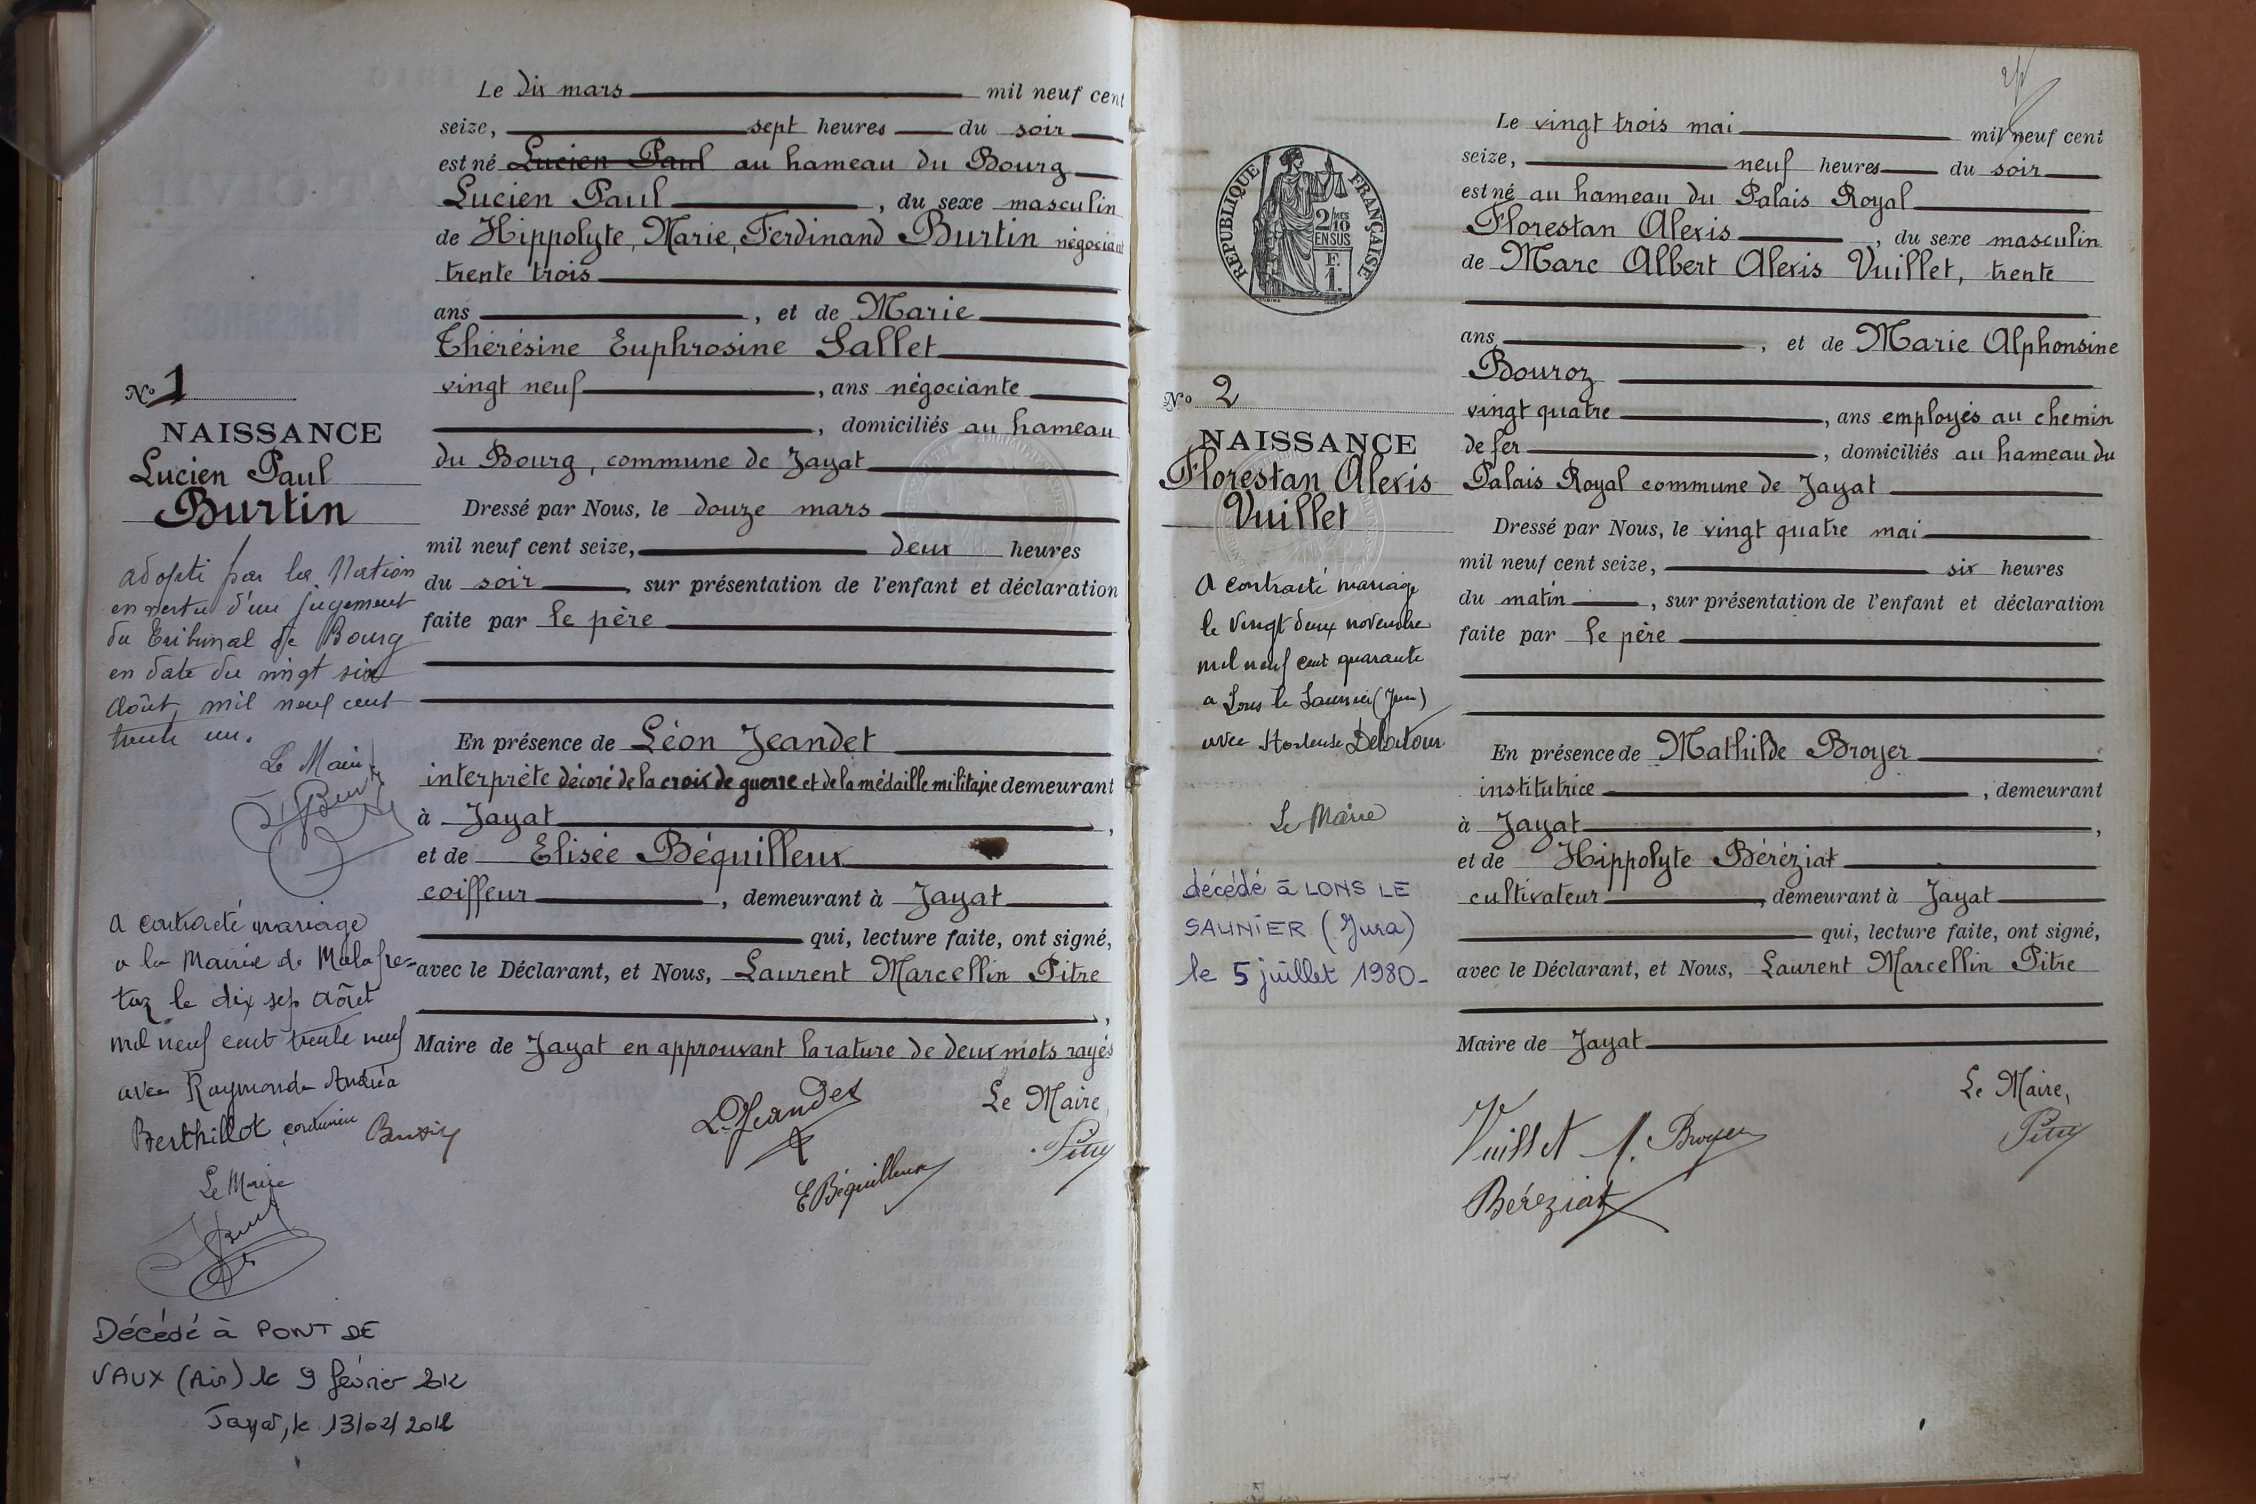 Le dix mars mil neuf cent
seize, sept heures du soir
est né Lucien Paul au hameau du Bourg
Lucien Paul, du sexe masculin
de Hippolyte, Marie, Ferdinand Burtin négociant
trente trois
ans, et de Marie
Thérésine Euphrosine Sallet
vingt neuf, ans négociante
, domiciliés au hameau
du Bourg, commune de Jayat
Dressé par Nous, le douze mars
mil neuf cent seize, deux heures
du soir, sur présentation de l'enfant et déclaration
faite par le père
En présence de Léon Jeandet
interprète décoré de la croix de guerre et de la médaille militaire demeurant
à Jayat,
et de Elisée Béquilleux
coiffeur, demeurant à Jayat
qui, lecture faite, ont signé,
avec le Déclarant, et Nous, Laurent Marcellin Pitre
,
Maire de Jayat en approuvant la rature de deux mots rayés
Le Maire,
L. Jeandet
Pitre
E Béquilleux
Burtin
No 1
NAISSANCE
Lucien Paul
Burtin
adopté par la Nation
en vertu d'un jugement
du Tribunal de Bourg
en date du vingt six
Août mil neuf cent
trente un.
Le Maire
A contracté mariage
a la Mairie de Malafre-
taz le dix sep Août
mil neuf cent trente neuf
avec Raymonde Andréa
Berthillot
Le Maire
Décédé à PONT DE
VAUX (Ain) le 9 février 2012
Jayat, le 13/02/2012
Le vingt trois mai mil neuf cent
seize, neuf heures du soir
est né au hameau du Palais Royal
Florestan Alexis, du sexe masculin
de Marc Albert Alexis Vuillet, trente
ans, et de Marie Alphonsine
Bouroz
vingt quatre, ans employés au chemin
de fer, domiciliés au hameau du
Palais Royal commune de Jayat
Dressé par Nous, le vingt quatre mai
mil neuf cent seize, six heures
du matin, sur présentation de l'enfant et déclaration
faite par le père
En présence de Mathilde Broyer
institutrice, demeurant
à Jayat,
et de Hippolyte Béréziat
cultivateur, demeurant à Jayat
qui, lecture faite, ont signé,
avec le Déclarant, et Nous, Laurent Marcellin Pitre
Maire de Jayat
Le Maire,
Vuillet M. Broyer
Pitre
Béréziat
RÉPUBLIQUE FRANÇAISE
2/10 MES
EN SUS
F.
1.
No 2
NAISSANCE
Florestan Alexis
Vuillet
A contracté mariage
le vingt deux novembre
mil neuf cent quarante
a Lons le Saunier (Jura)
avec Hortense
Le Maire
décédé à LONS LE
SAUNIER (Jura)
le 5 juillet 1980-